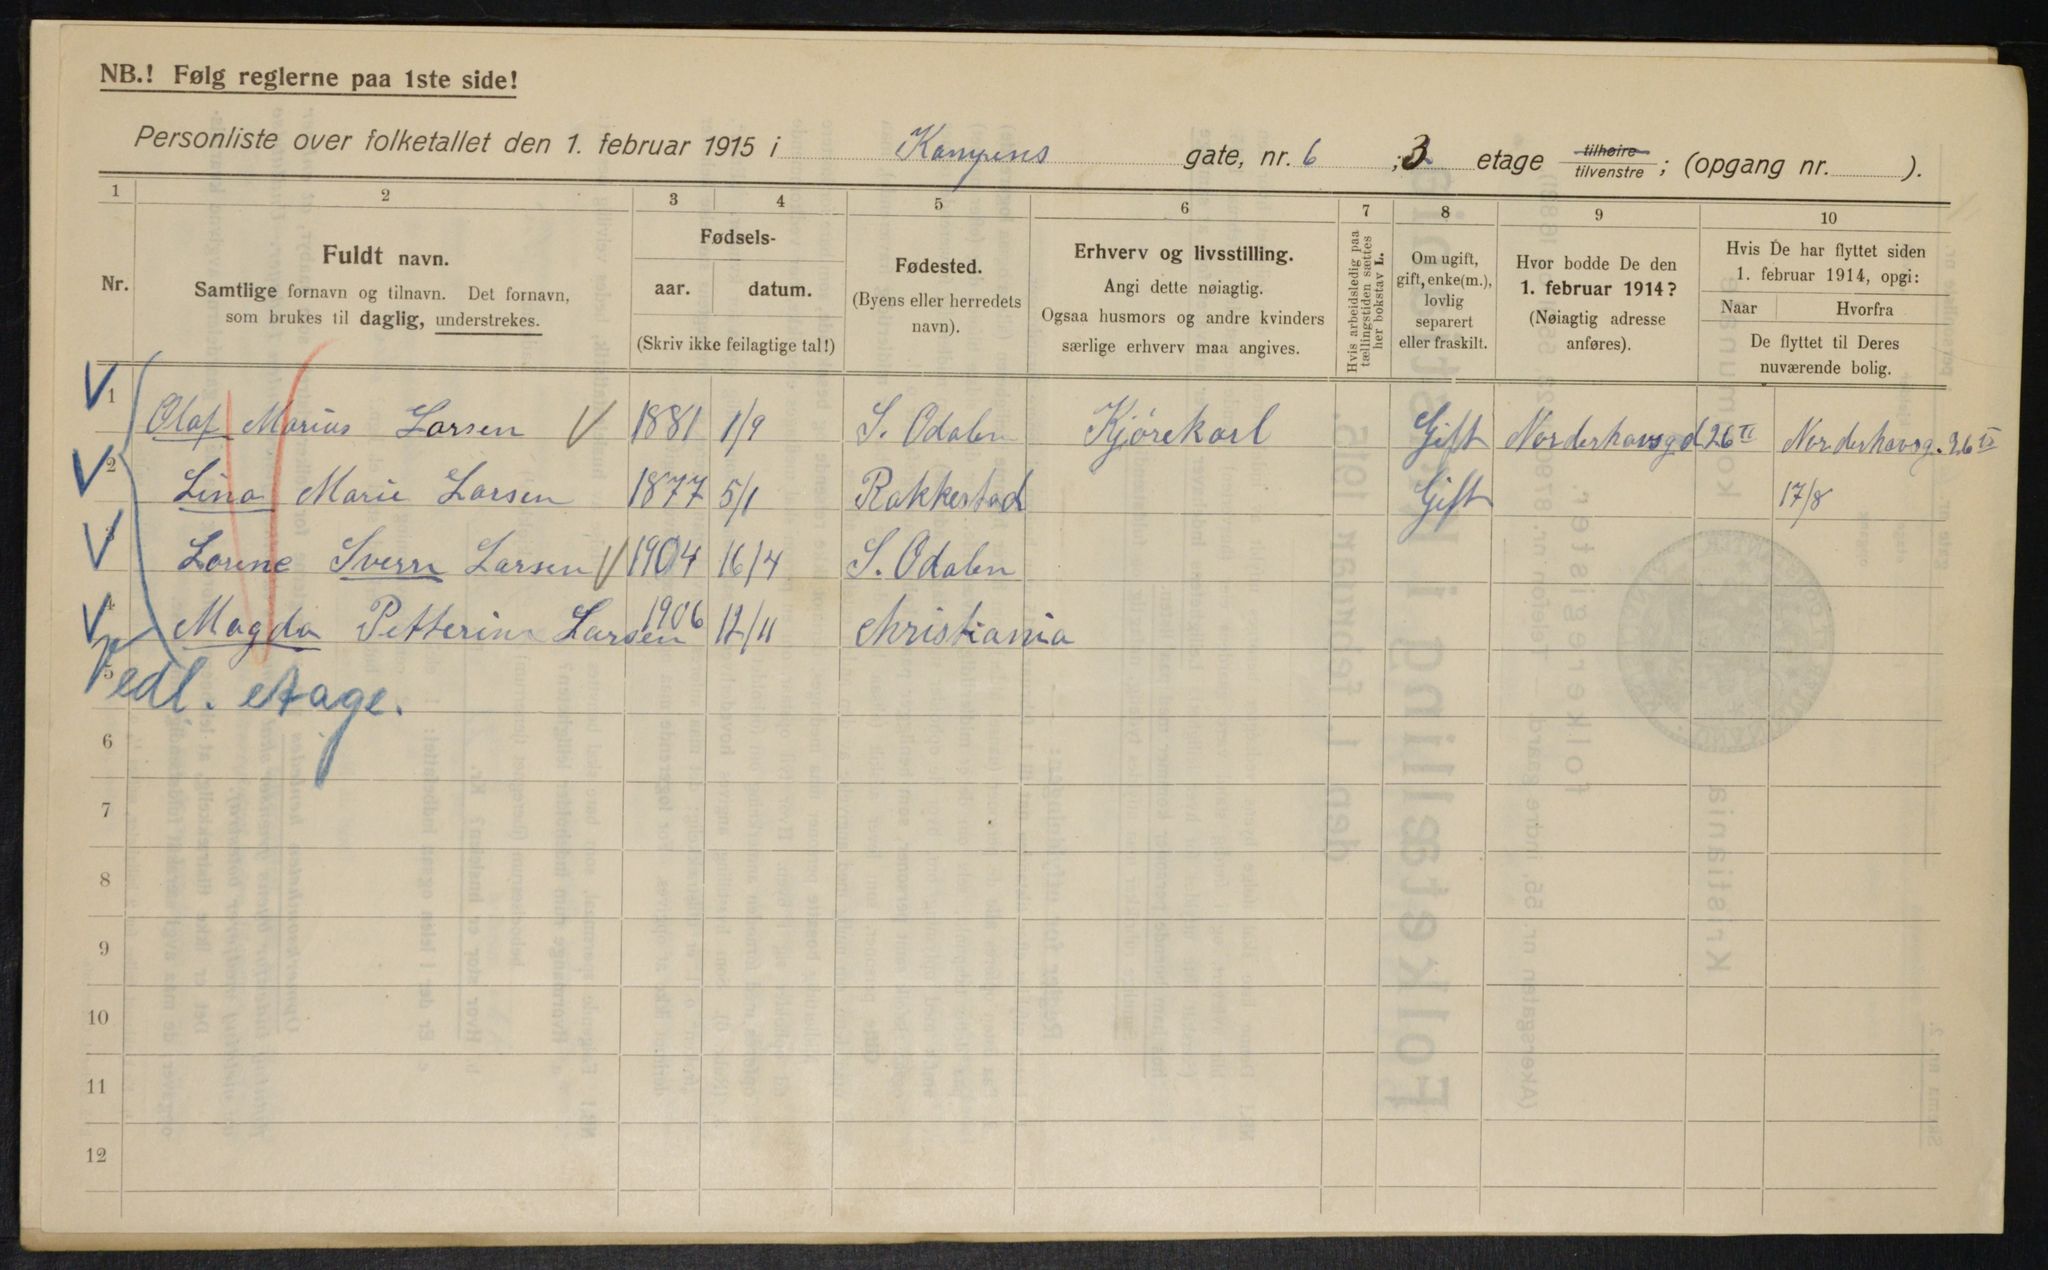 NB.! Følg reglerne paa 1ste side!
Personliste over folketallet den 1. februar 1915 i Kampens gate, nr. 6 ; 3 etage tilhøire tilvenstre ; (opgang nr. ).
1 2 3 4 5 6 7 8 9 10
Nr.
Fuldt navn.
Samtlige fornavn og tilnavn. Det fornavn,
som brukes til daglig, understrekes.
Fødsels-
aar. datum.
(Skriv ikke feilagtige tal!)
Fødested.
(Byens eller herredets
navn).
Erhverv og livsstilling.
Angi dette nøiagtig.
Ogsaa husmors og andre kvinders
særlige erhverv maa angives.
Hvis arbeidsledig paa
tællingstiden sættes
her bokstav L.
Om ugift,
gift, enke(m.),
lovlig
separert
eller fraskilt.
Hvor bodde De den
1. februar 1914?
(Nøiagtig adresse
anføres).
Hvis De har flyttet siden
1. februar 1914, opgi:
Naar Hvorfra
De flyttet til Deres
nuværende bolig.
1 Olaf Marius Larsen 1881 1/9 S. Odalen Kjörekarl Gift Norderhovsgd 26 II Norderhovsg. 26 II
2 Lina Marie Larsen 1877 5/1 Rakkestad Gift 17/8
3 Lorene Sverre Larsen 1904 16/4 S. Odalen
4 Magda Petterine Larsen 1906 12/11 Christiania
5 Vedl. etage.
6
7
8
9
10
11
12